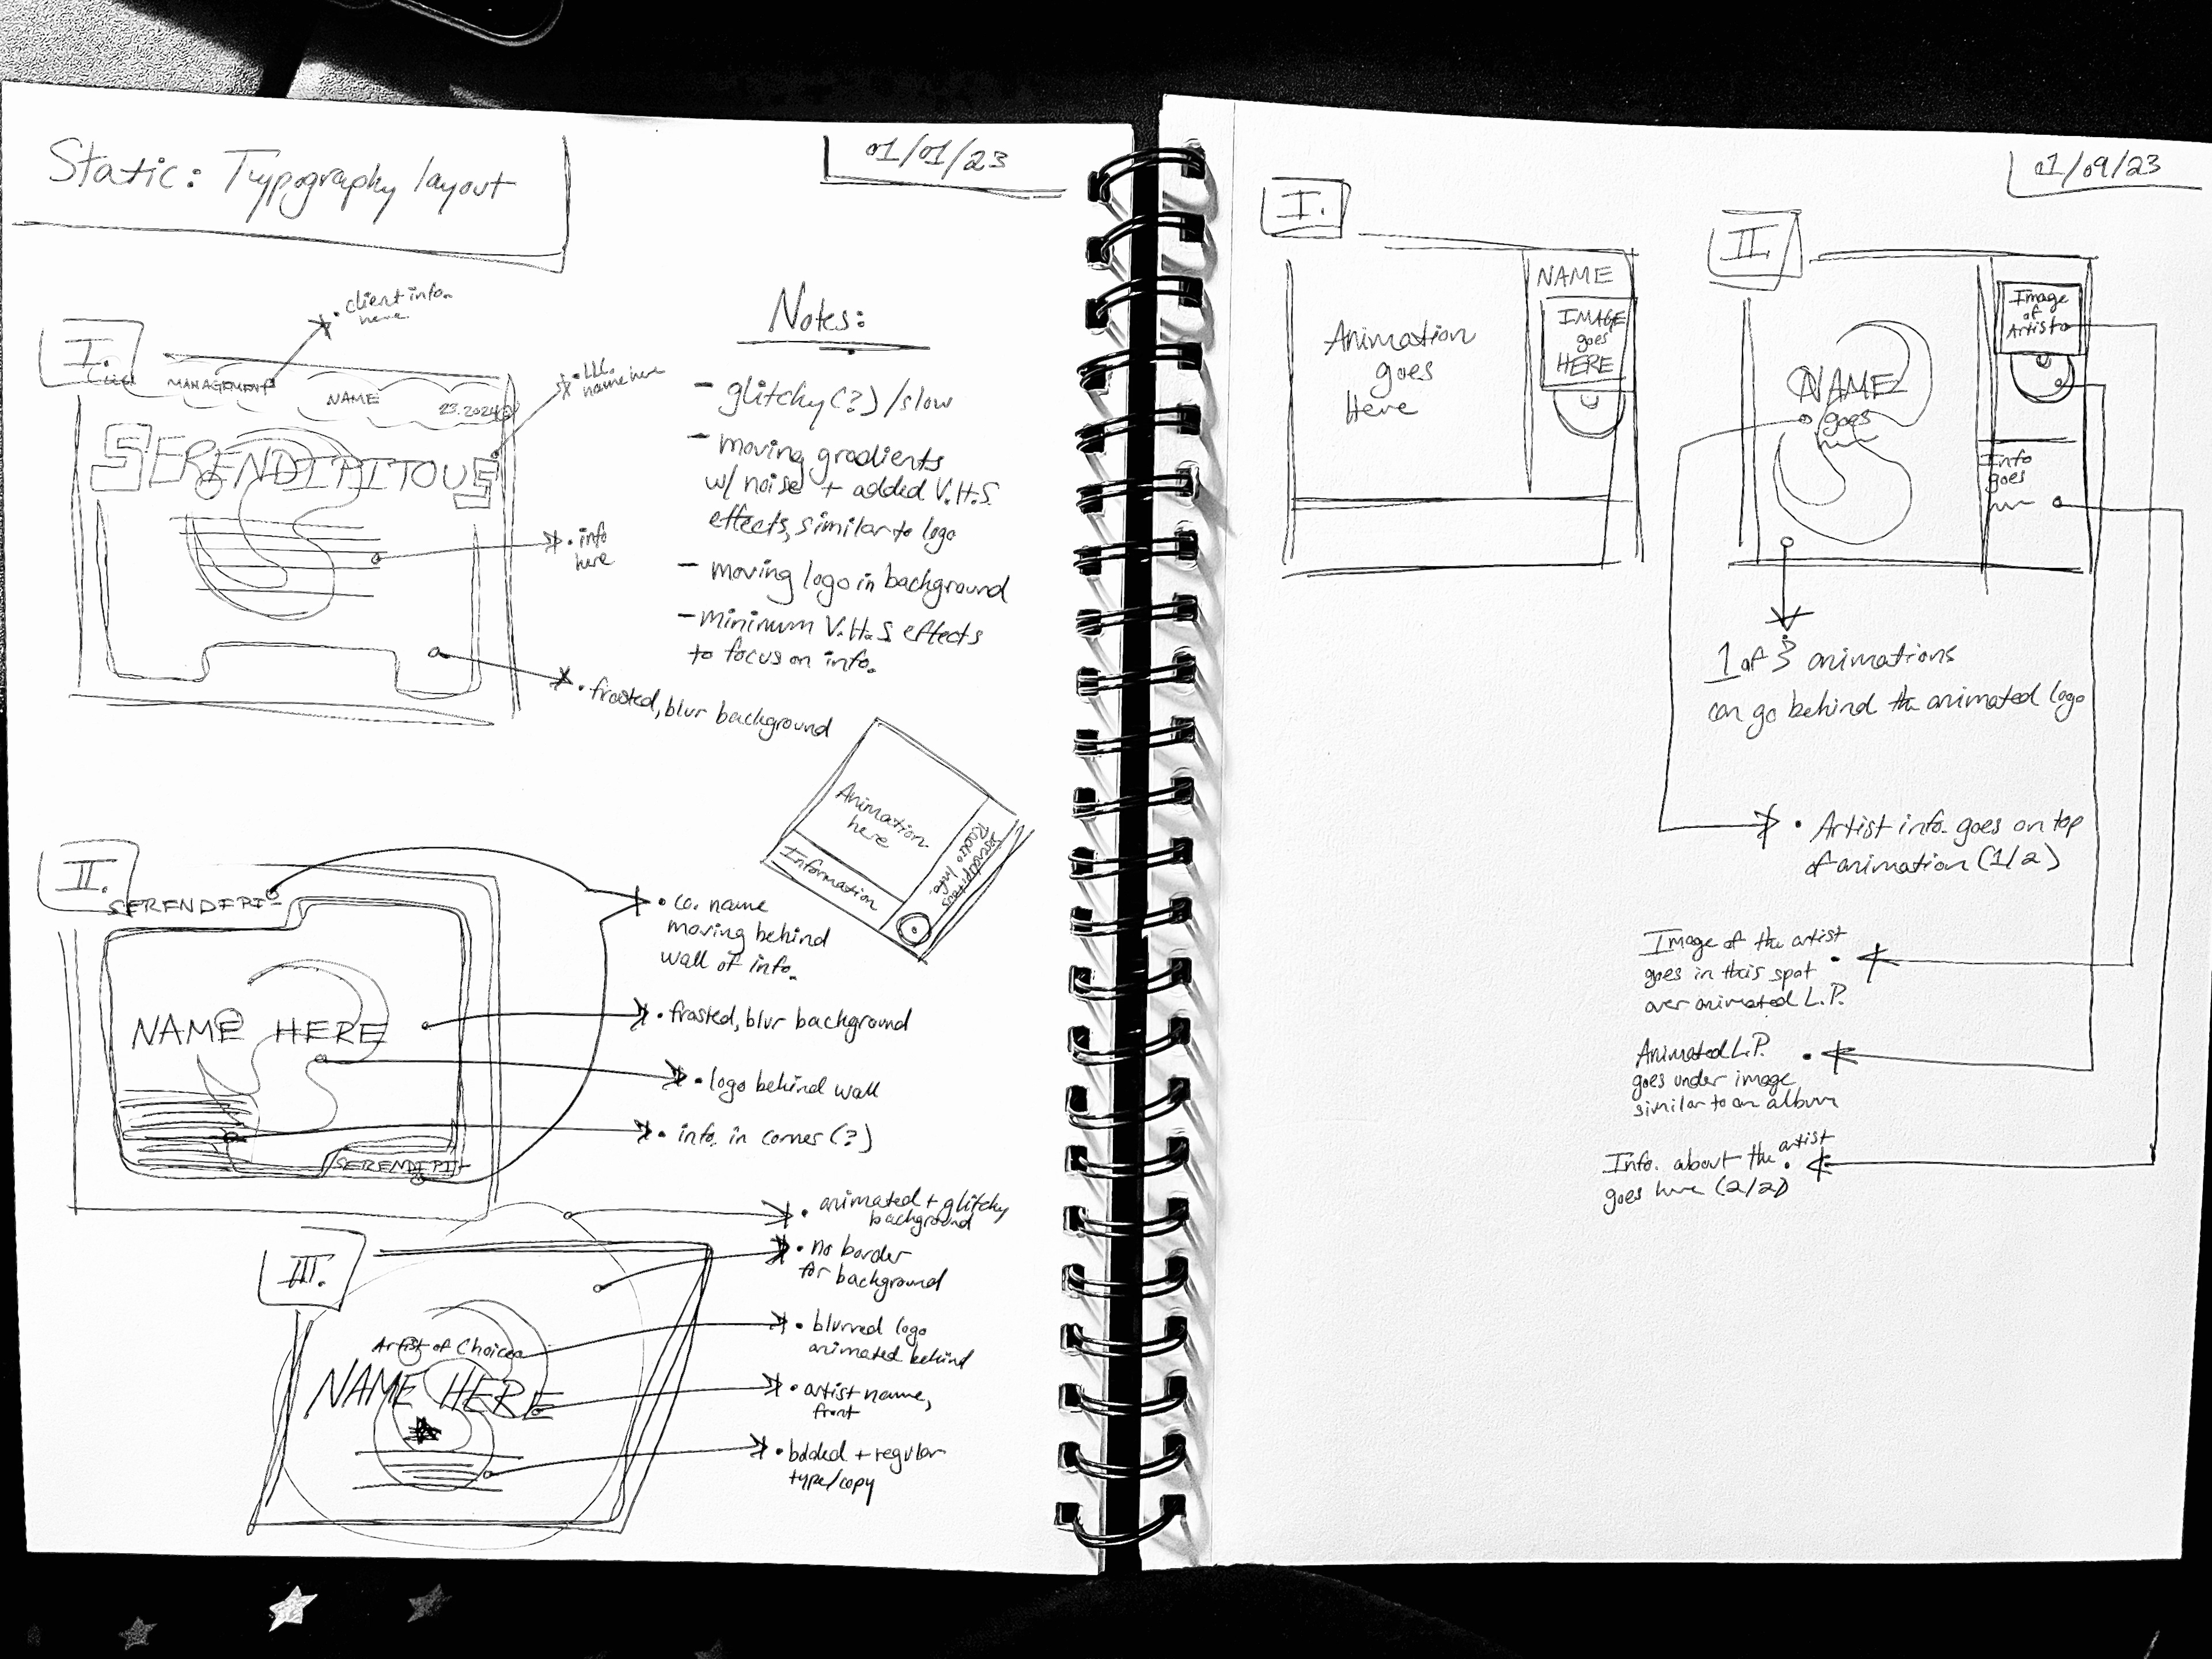 Static: Typography layout
01/01/23
I.
• client info.
here
MANAGEMENT
NAME
• LLC.
name here
SERENDIPITOUS
• info
here
• frosted, blur background
Notes:
- glitchy(?)/slow
- moving gradients
w/ noise + added V.H.S.
effects, similar to logo
- moving logo in background
- minimum V.H.S effects
to focus on info.
Animation
here
Information
Serendipitous
Radio Info.
II.
SERENDIPI
NAME HERE
SERENDIPIT
• co. name
moving behind
wall of info.
• frosted, blur background
• logo behind wall
• info. in corner (?)
III.
Artist of Choice
NAME HERE
• animated + glitchy
background
• no border
for background
• blurred logo
animated behind
• artist name,
front
• bolded + regular
type/copy
01/09/23
I.
Animation
goes
Here
NAME
IMAGE
goes
HERE
II.
NAME
goes
Image
of
Artist
Info
goes
1 of 3 animations
can go behind the animated logo
• Artist info. goes on top
of animation (1/2)
Image of the artist
goes in this spot •
over animated L.P.
Animated L.P. •
goes under image
similar to an album
Info. about the artist •
goes here (2/2)